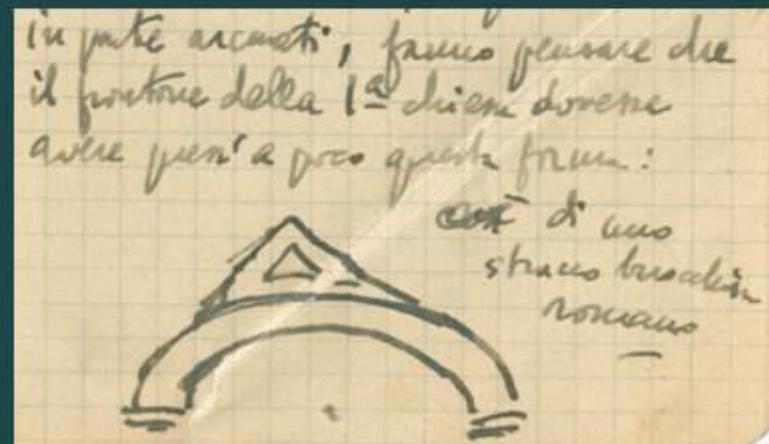 in parte arcuati, fanno pensare che
il frontone della 1ª chiesa dovesse
avere press'a poco questa forma:
di uno
strano
romano